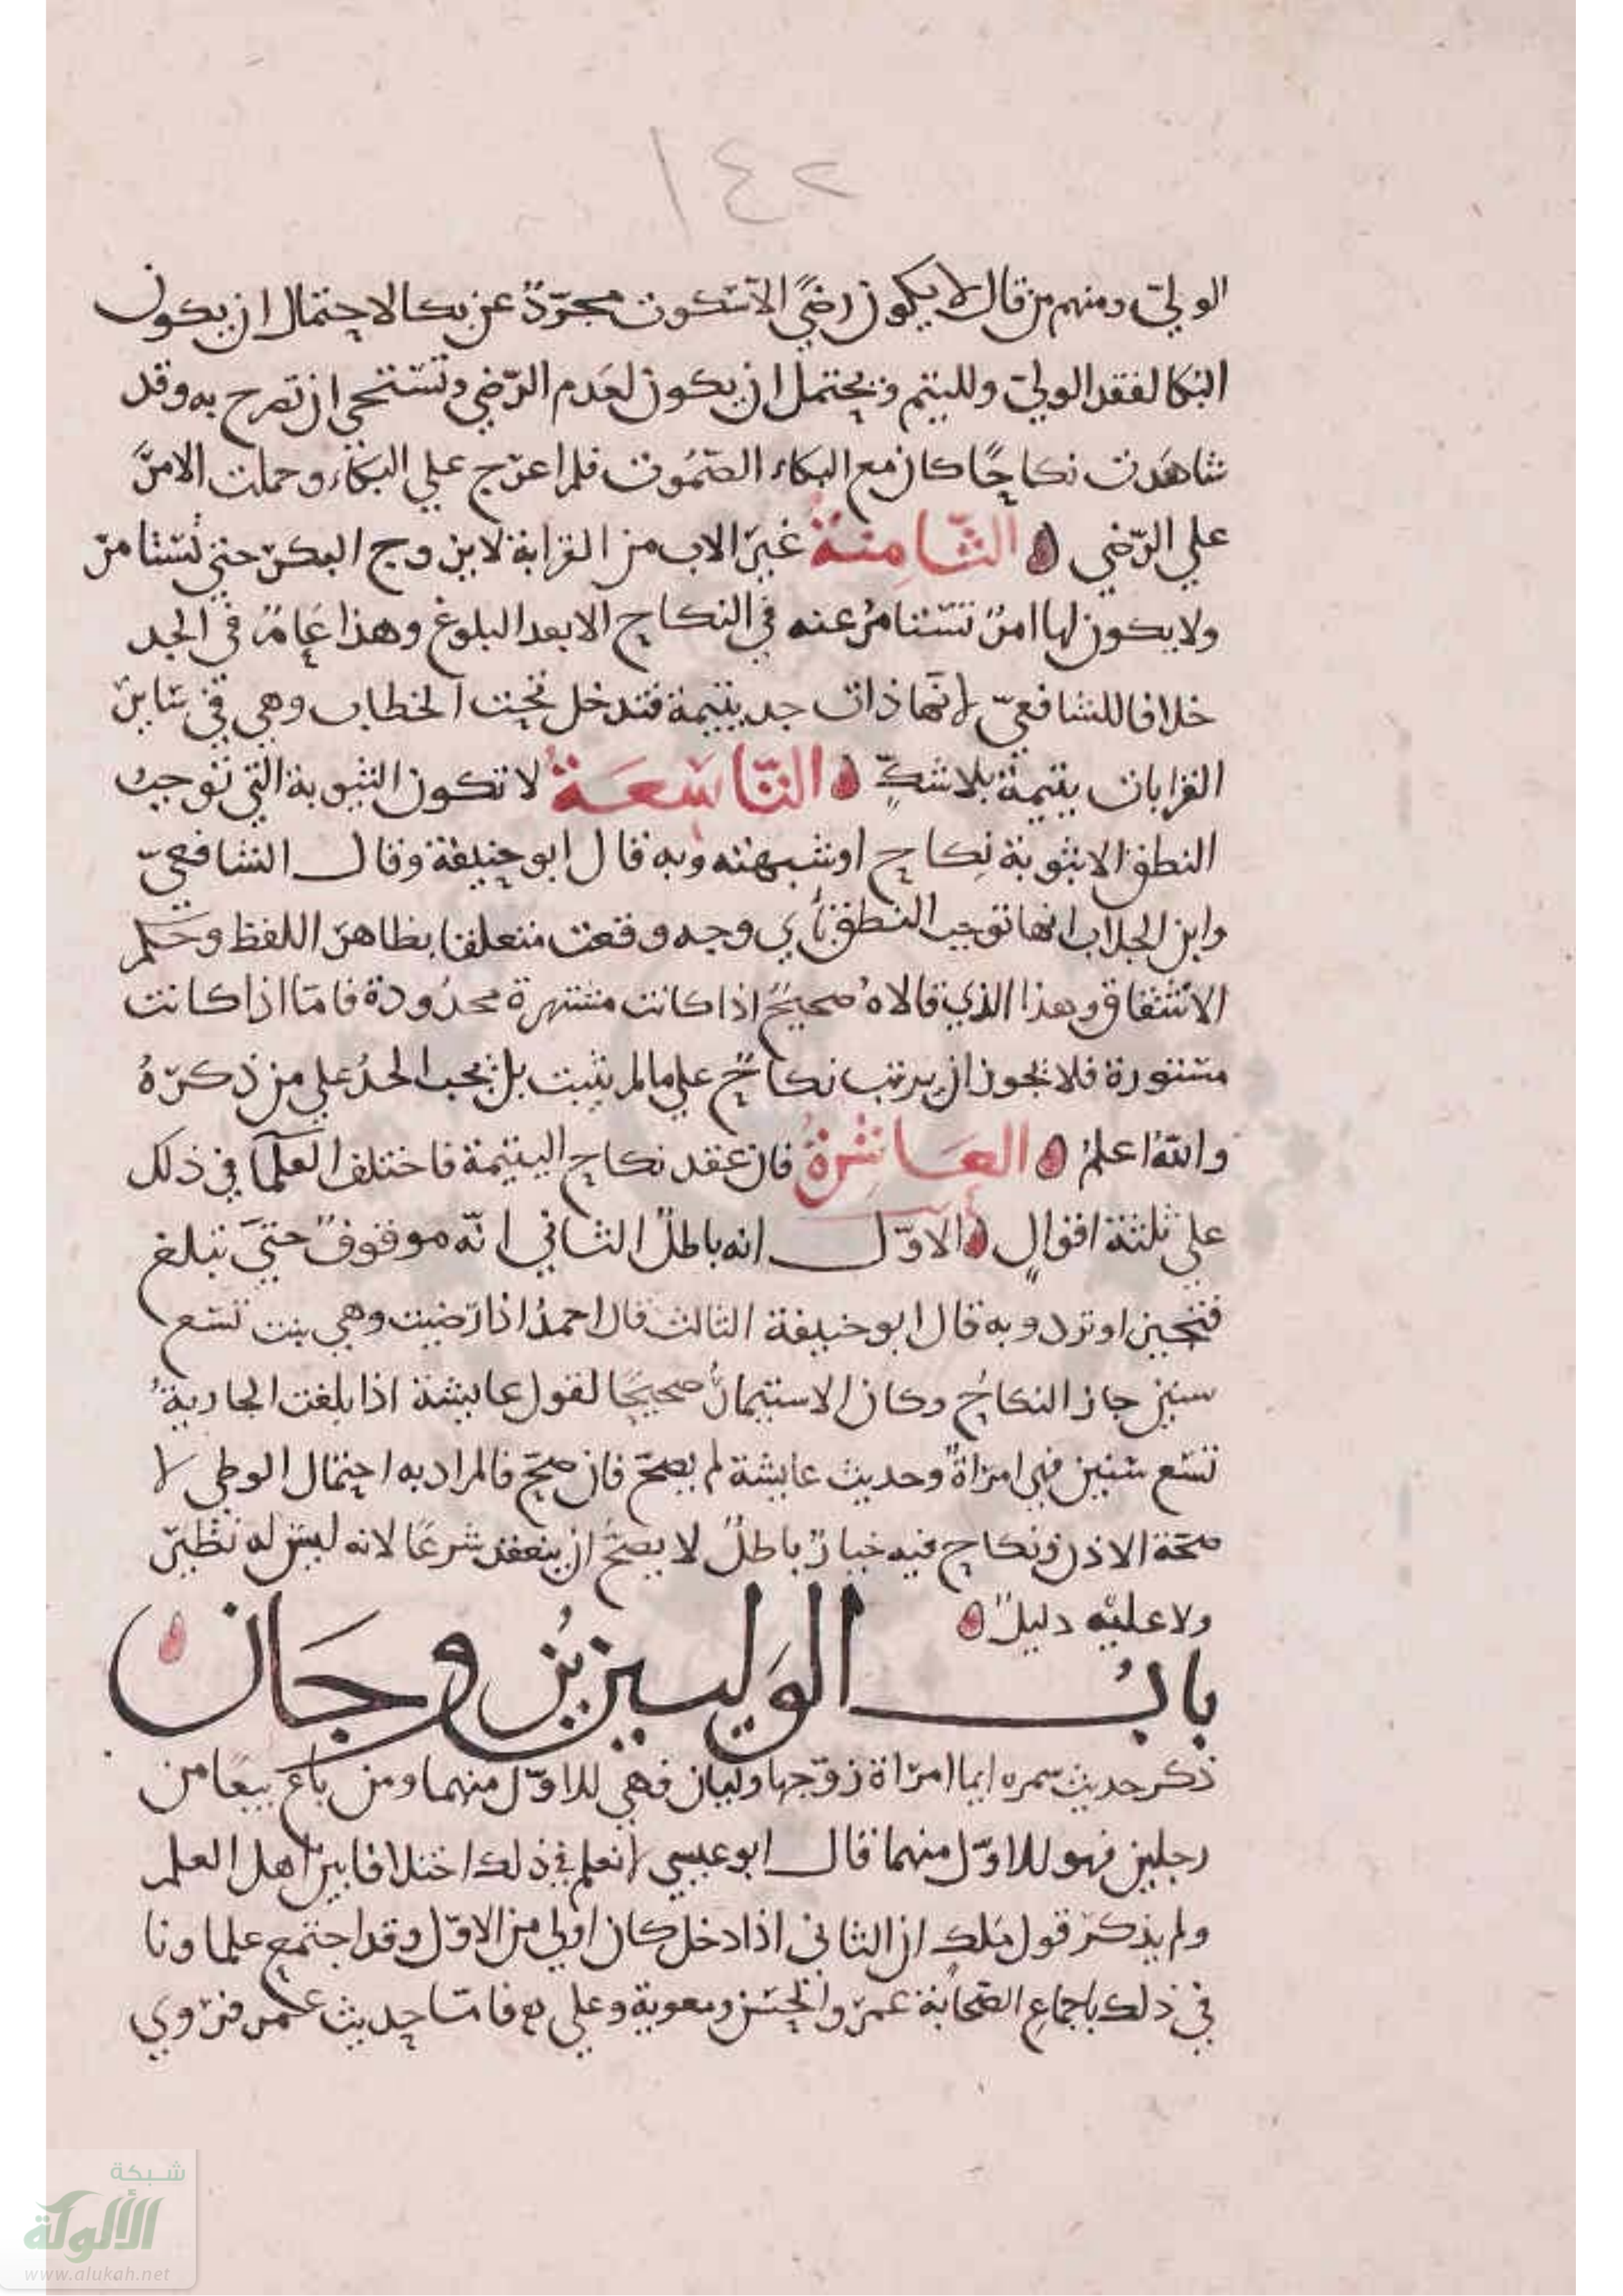 ١٤٢
الوليّ ومنهم من قال لا يكون رضًي الا سكوت مجرّدٌ عن بكا لاحتمال ان يكون
البكا لفقد الوليّ ولليتم ويحتمل ان يكون لعدم الرّضي وتستحي ان تصرح به وقد
شاهدت نكاحًا كان مع البكاء الصّمُوت فلم اعرّج علي البكاء وحملت الامرَ
علي الرّضي الثّامِنةُ غيرُ الاب من القرابة لا يزوج البكر حتي تستامر
ولا يكون لها امرٌ تستامرُ عنه في النكاح الا بعد البلوغ وهذا عَامٌ في الجد
خلافا للشافعيّ لانّها ذات جد يتيمة فتدخل تحت الخطاب وهي في سَاير
القرابات يتيمة بلا شكٍّ التّاسَعَةُ لا تكون الثيوبة التي توجبُ
النطق الا ثيوبة نِكاح او شبهته وبه قال ابو حنيفة وقال الشافعيّ
وابن الجلاب انها توجب النطق باي وجه وقعت متعلقا بظاهر اللفظ وحكم
الاشتقاق وهذا الذي قالاهُ صحيحٌ اذا كانت مشتهرة محدُودة فامّا اذا كانت
مستورة فلا يجوز ان يرتب نكاحٌ علي ما لم يثبت بل يجب الحدُ علي من ذكرهُ
والله اعلمُ العَاشِرةُ فان عقد نكاح اليتيمة فاختلف العلمآ في ذلك
علي ثلثة اقوالٍ الاوّل انه باطلٌ الثاني انّه موقوفٌ حتيَ تبلغ
فتجيز او ترد وبه قال ابو حنيفة الثالث قال احمدُ اذا رَضيت وهي بنت تسع
سنين جاز النكاحُ وكان الاستيمارُ صحيحًا لقول عايشة اذا بلغت الجاريةُ
تسع سنين فهي امراةٌ وحديث عايشة لم يصحّ فان صحّ فالمراد به احتمال الوطي لا
صحّة الاذن ونكاح فيه خيارٌ باطلٌ لا يصحُّ ان ينعقد شرعًا لانه ليس له نظيرٌ
ولا عليه دليلٌ
بابُ الوَليين يُزوجَان
ذكر حديث سمره ايما امرَاة زوّجها وليان فهي للاوّل منهما ومن باعَ بيعًا من
رجلين فهو للاوّل منهما قال ابو عيسي لا نعلم في ذلك اختلافا بين اهل العلم
ولم يذكر قول مَلك ان الثاني اذا دخل كان اولي من الاوّل وقد اجتمع علماونا
في ذلك باجماع الصّحابة عمرَ والحسَن ومعوية وعلي فامّا حديث عُمر فرَوي
شبكة
الألوكة
www.alukah.net